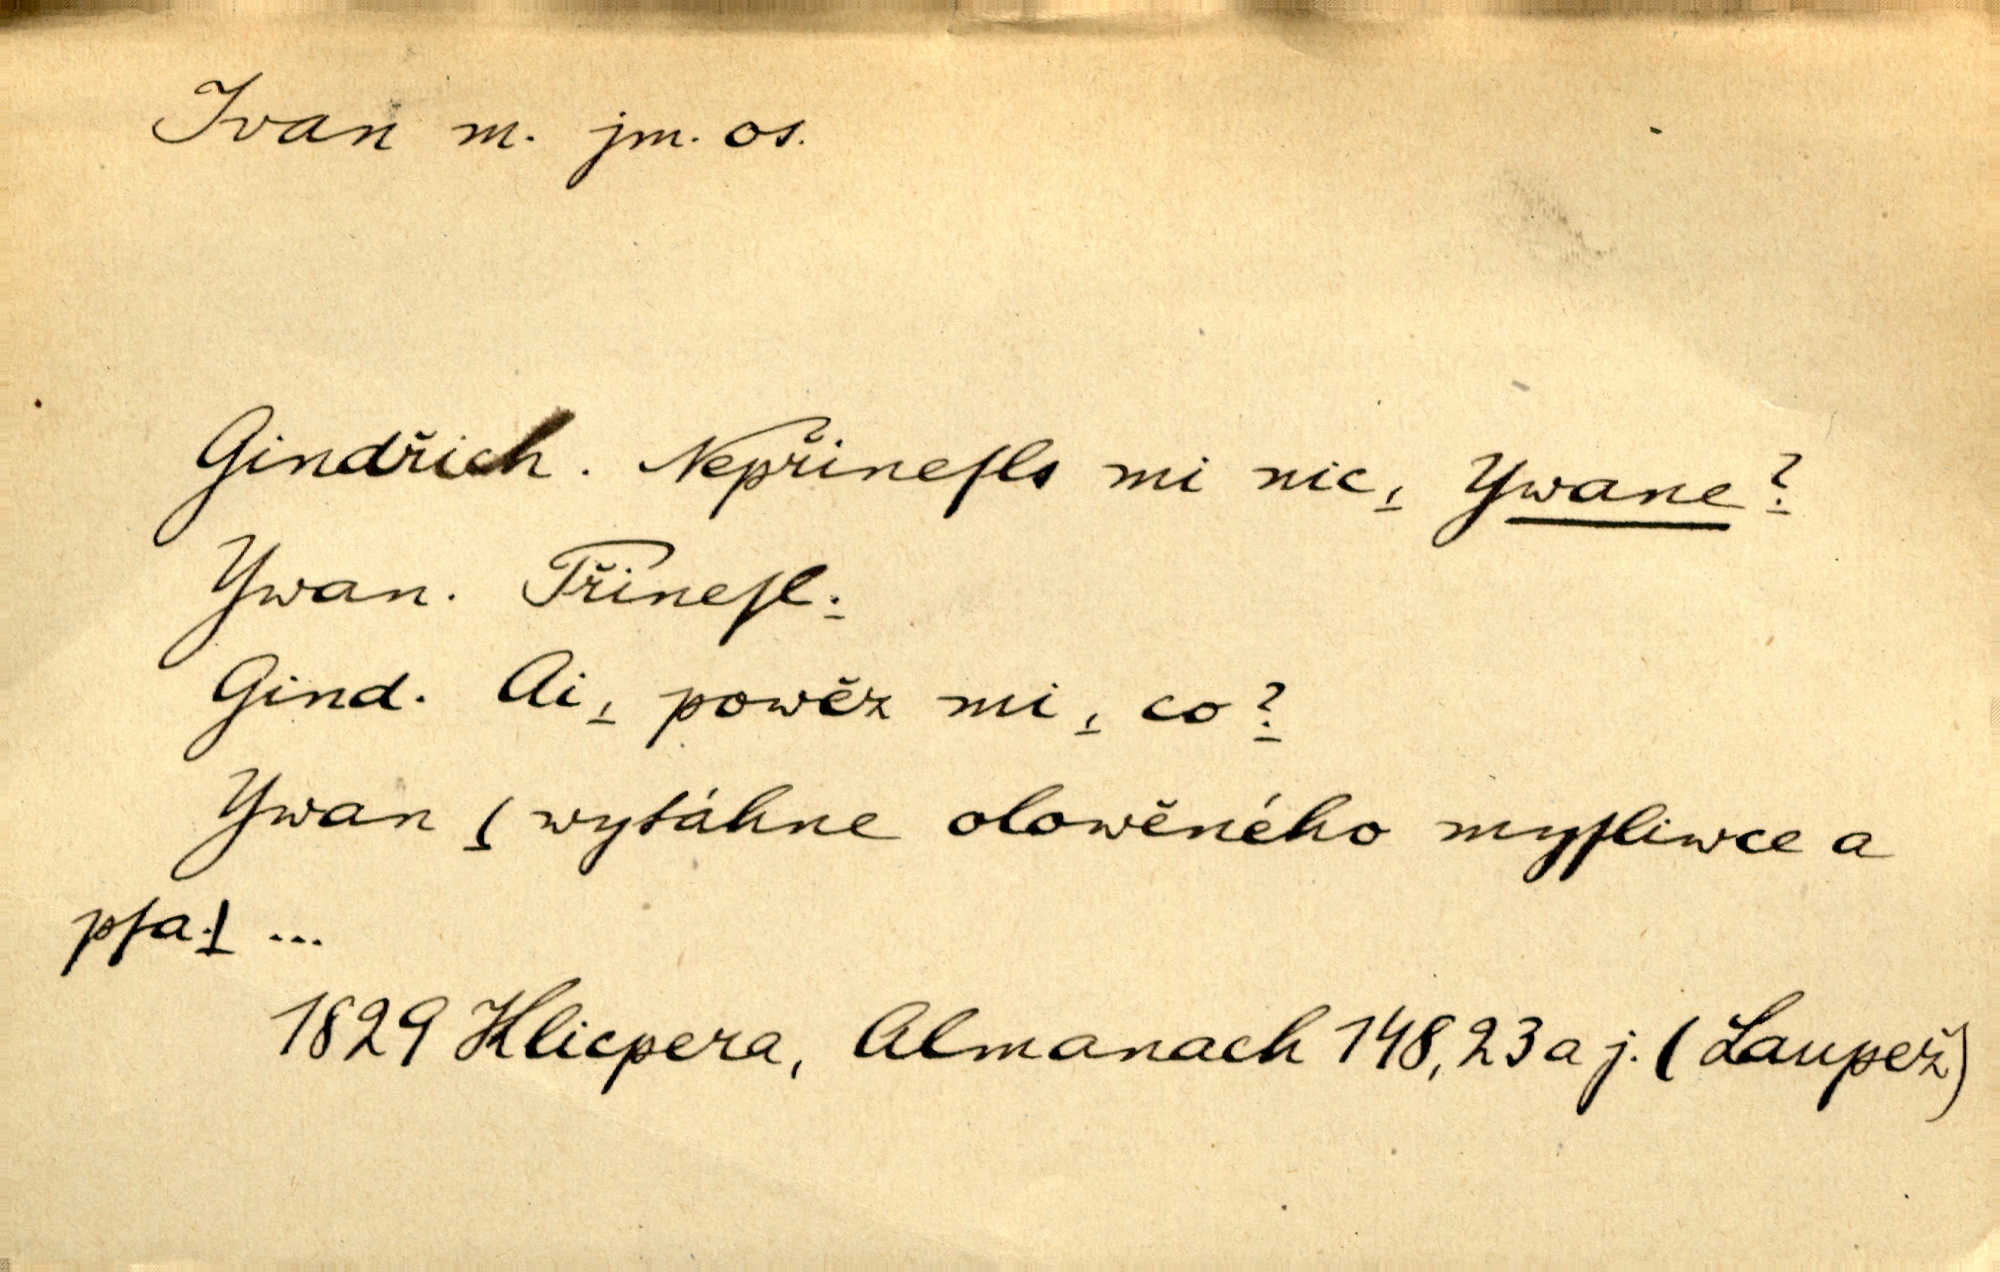 Ivan m. jm. os.
Gindřich. Nepřineſls mi nic, Ywane?
Ywan. Přineſl.
Gind. Ai, powěz mi, co?
Ywan (wytáhne olowěného myſliwce a
pſa.) ...
1829 Klicpera, Almanach 148,23 a j. (Laupež)